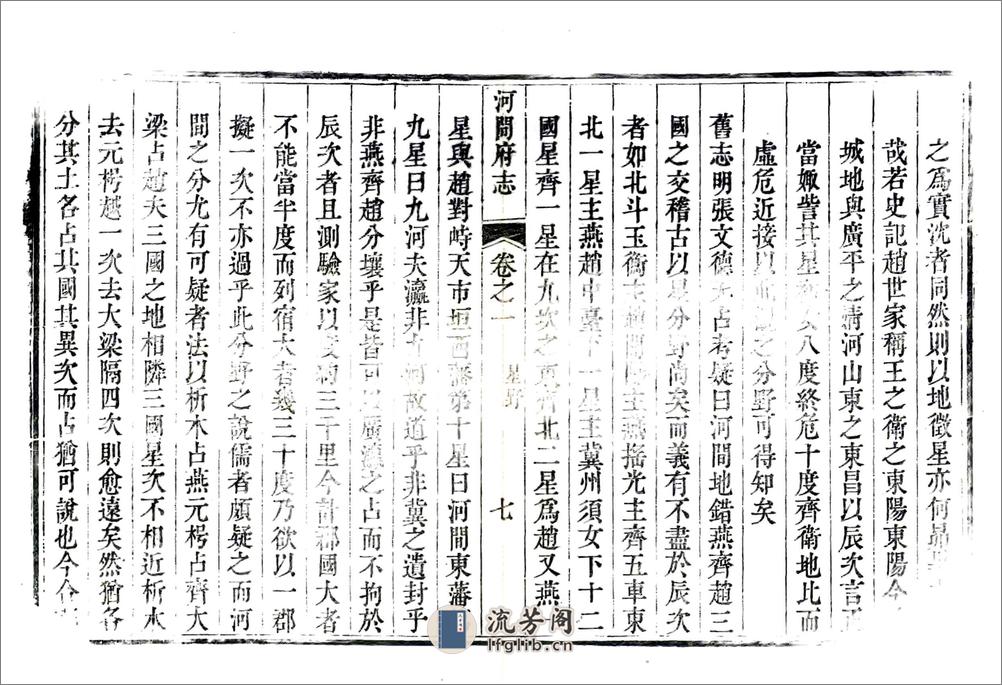 之爲實沈者同然則以地徵星亦何昴
哉若史記趙世家稱王之衛之東陽東陽今
城地與廣平之清河山東之東昌以辰次言
當娵訾其星 八度終危十度齊衛地比而
虛危近接以 之分野可得知矣
舊志明張文德 占考疑曰河間地錯燕齊趙三
國之交稽古以星分野尚矣而義有不盡於辰次
者如北斗玉衡主 主燕搖光主齊五車東
北一星主燕趙中臺下一星主冀州須女下十二
國星齊一星在九坎之東齊北二星爲趙又燕
河間府志 卷之一 星野 七
星與趙對峙天市垣西藩第十星曰河間東藩
九星曰九河夫瀛非 河故道乎非冀之遺封乎
非燕齊趙分壤乎是皆可 廣瀛之占而不拘於
辰次者且測驗家以 三千里今計郡國大者
不能當半度而列宿大者幾三十度乃欲以一郡
擬一次不亦過乎此分野之說儒者頗疑之而河
間之分尤有可疑者法以析木占燕元枵占齊大
梁占趙夫三國之地相隣三國星次不相近析木
去元枵越一次去大梁隔四次則愈遠矣然猶各
分其土各占其國其異次而占猶可說也今
流芳阁
lfglib.cn